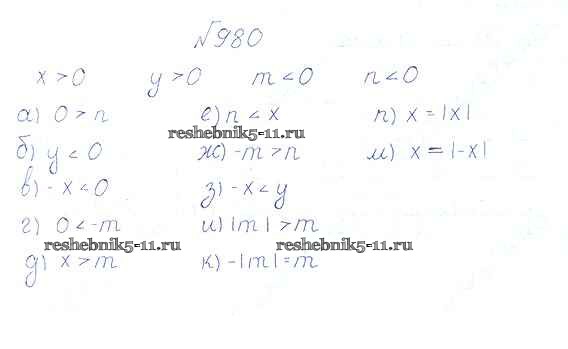 №980
x > 0 y > 0 m < 0 n < 0
а) 0 > n е) n < x л) x = |x|
reshebnik5-11.ru
б) y < 0 ж) -m > n м) x = |-x|
в) -x < 0 з) -x < y
г) 0 < -m и) |m| > m
reshebnik5-11.ru reshebnik5-11.ru
д) x > m к) -|m| = m